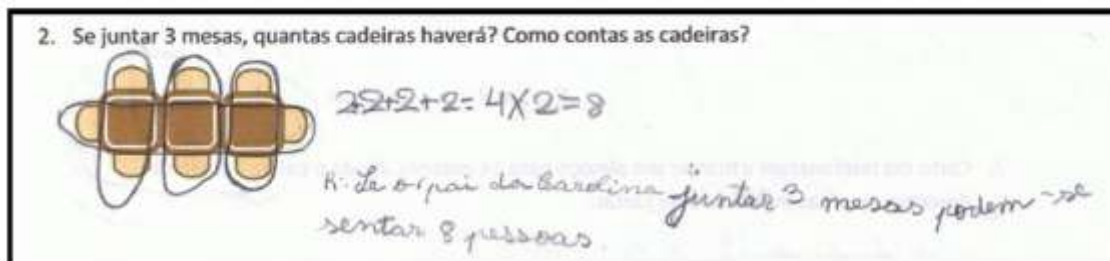 2. Se juntar 3 mesas, quantas cadeiras haverá? Como contas as cadeiras?
2+2+2+2= 4X2=8
R: Se o pai da Carolina juntar 3 mesas podem-se
sentar 8 pessoas.